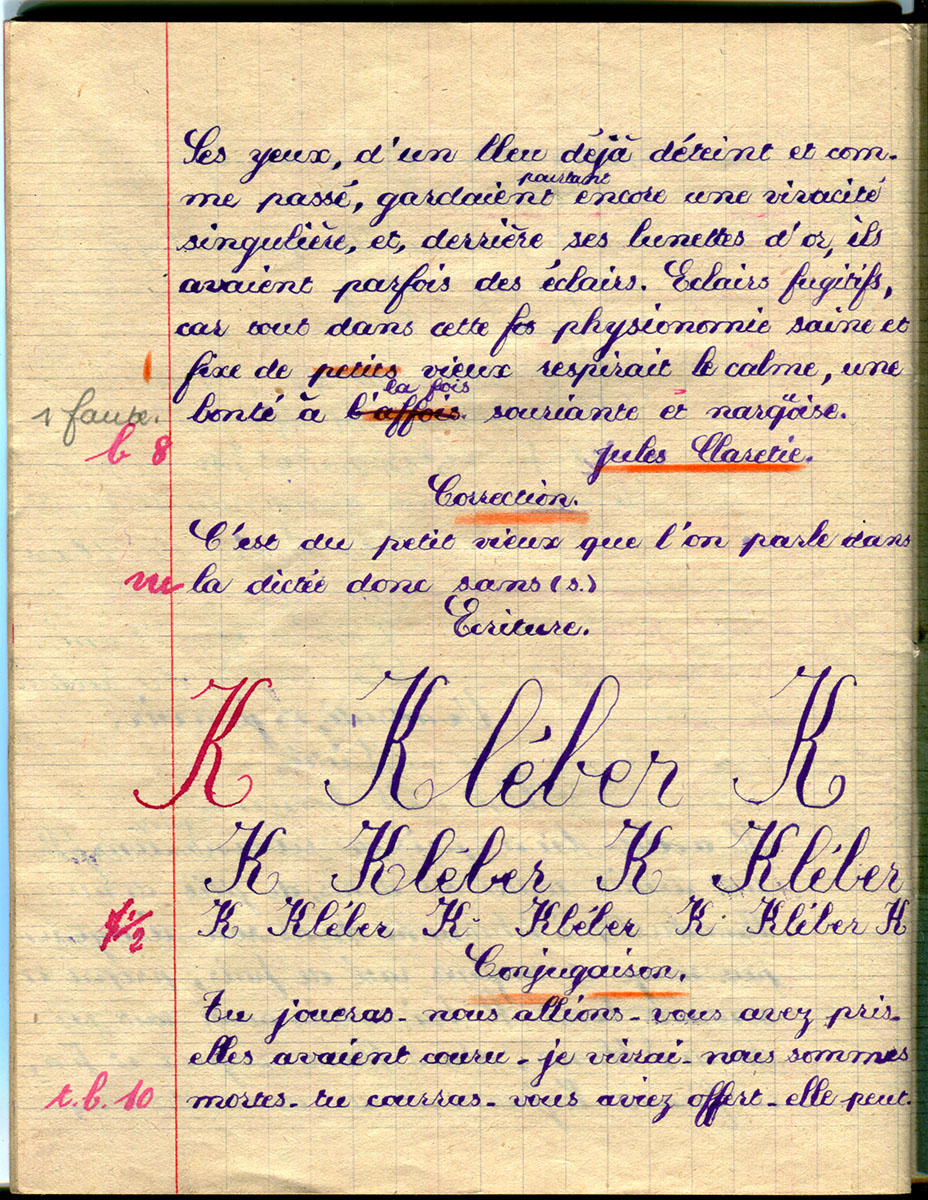 Ses yeux, d'un bleu déjà déteint et com-
me passé, gardaient pourtant encore une vivacité
singulière, et, derrière ses lunettes d'or, ils
avaient parfois des éclairs. Eclairs fugitifs,
car tout dans cette physionomie saine et
1 fixe de petits vieux respirait le calme, une
1 faute. bonté à l'affois la fois souriante et narquoise.
b 8 Jules Claretie.
Correction.
C'est du petit vieux que l'on parle dans
la dictée donc sans (s.)
Ecriture.
K Kléber K
K Kléber K Kléber
K Kléber K Kléber K Kléber K
Conjugaison.
Tu joueras - nous allions - vous avez pris -
elles avaient couru - je vivrai - nous sommes
t.b. 10 mortes - tu courras - vous aviez offert - elle peut.